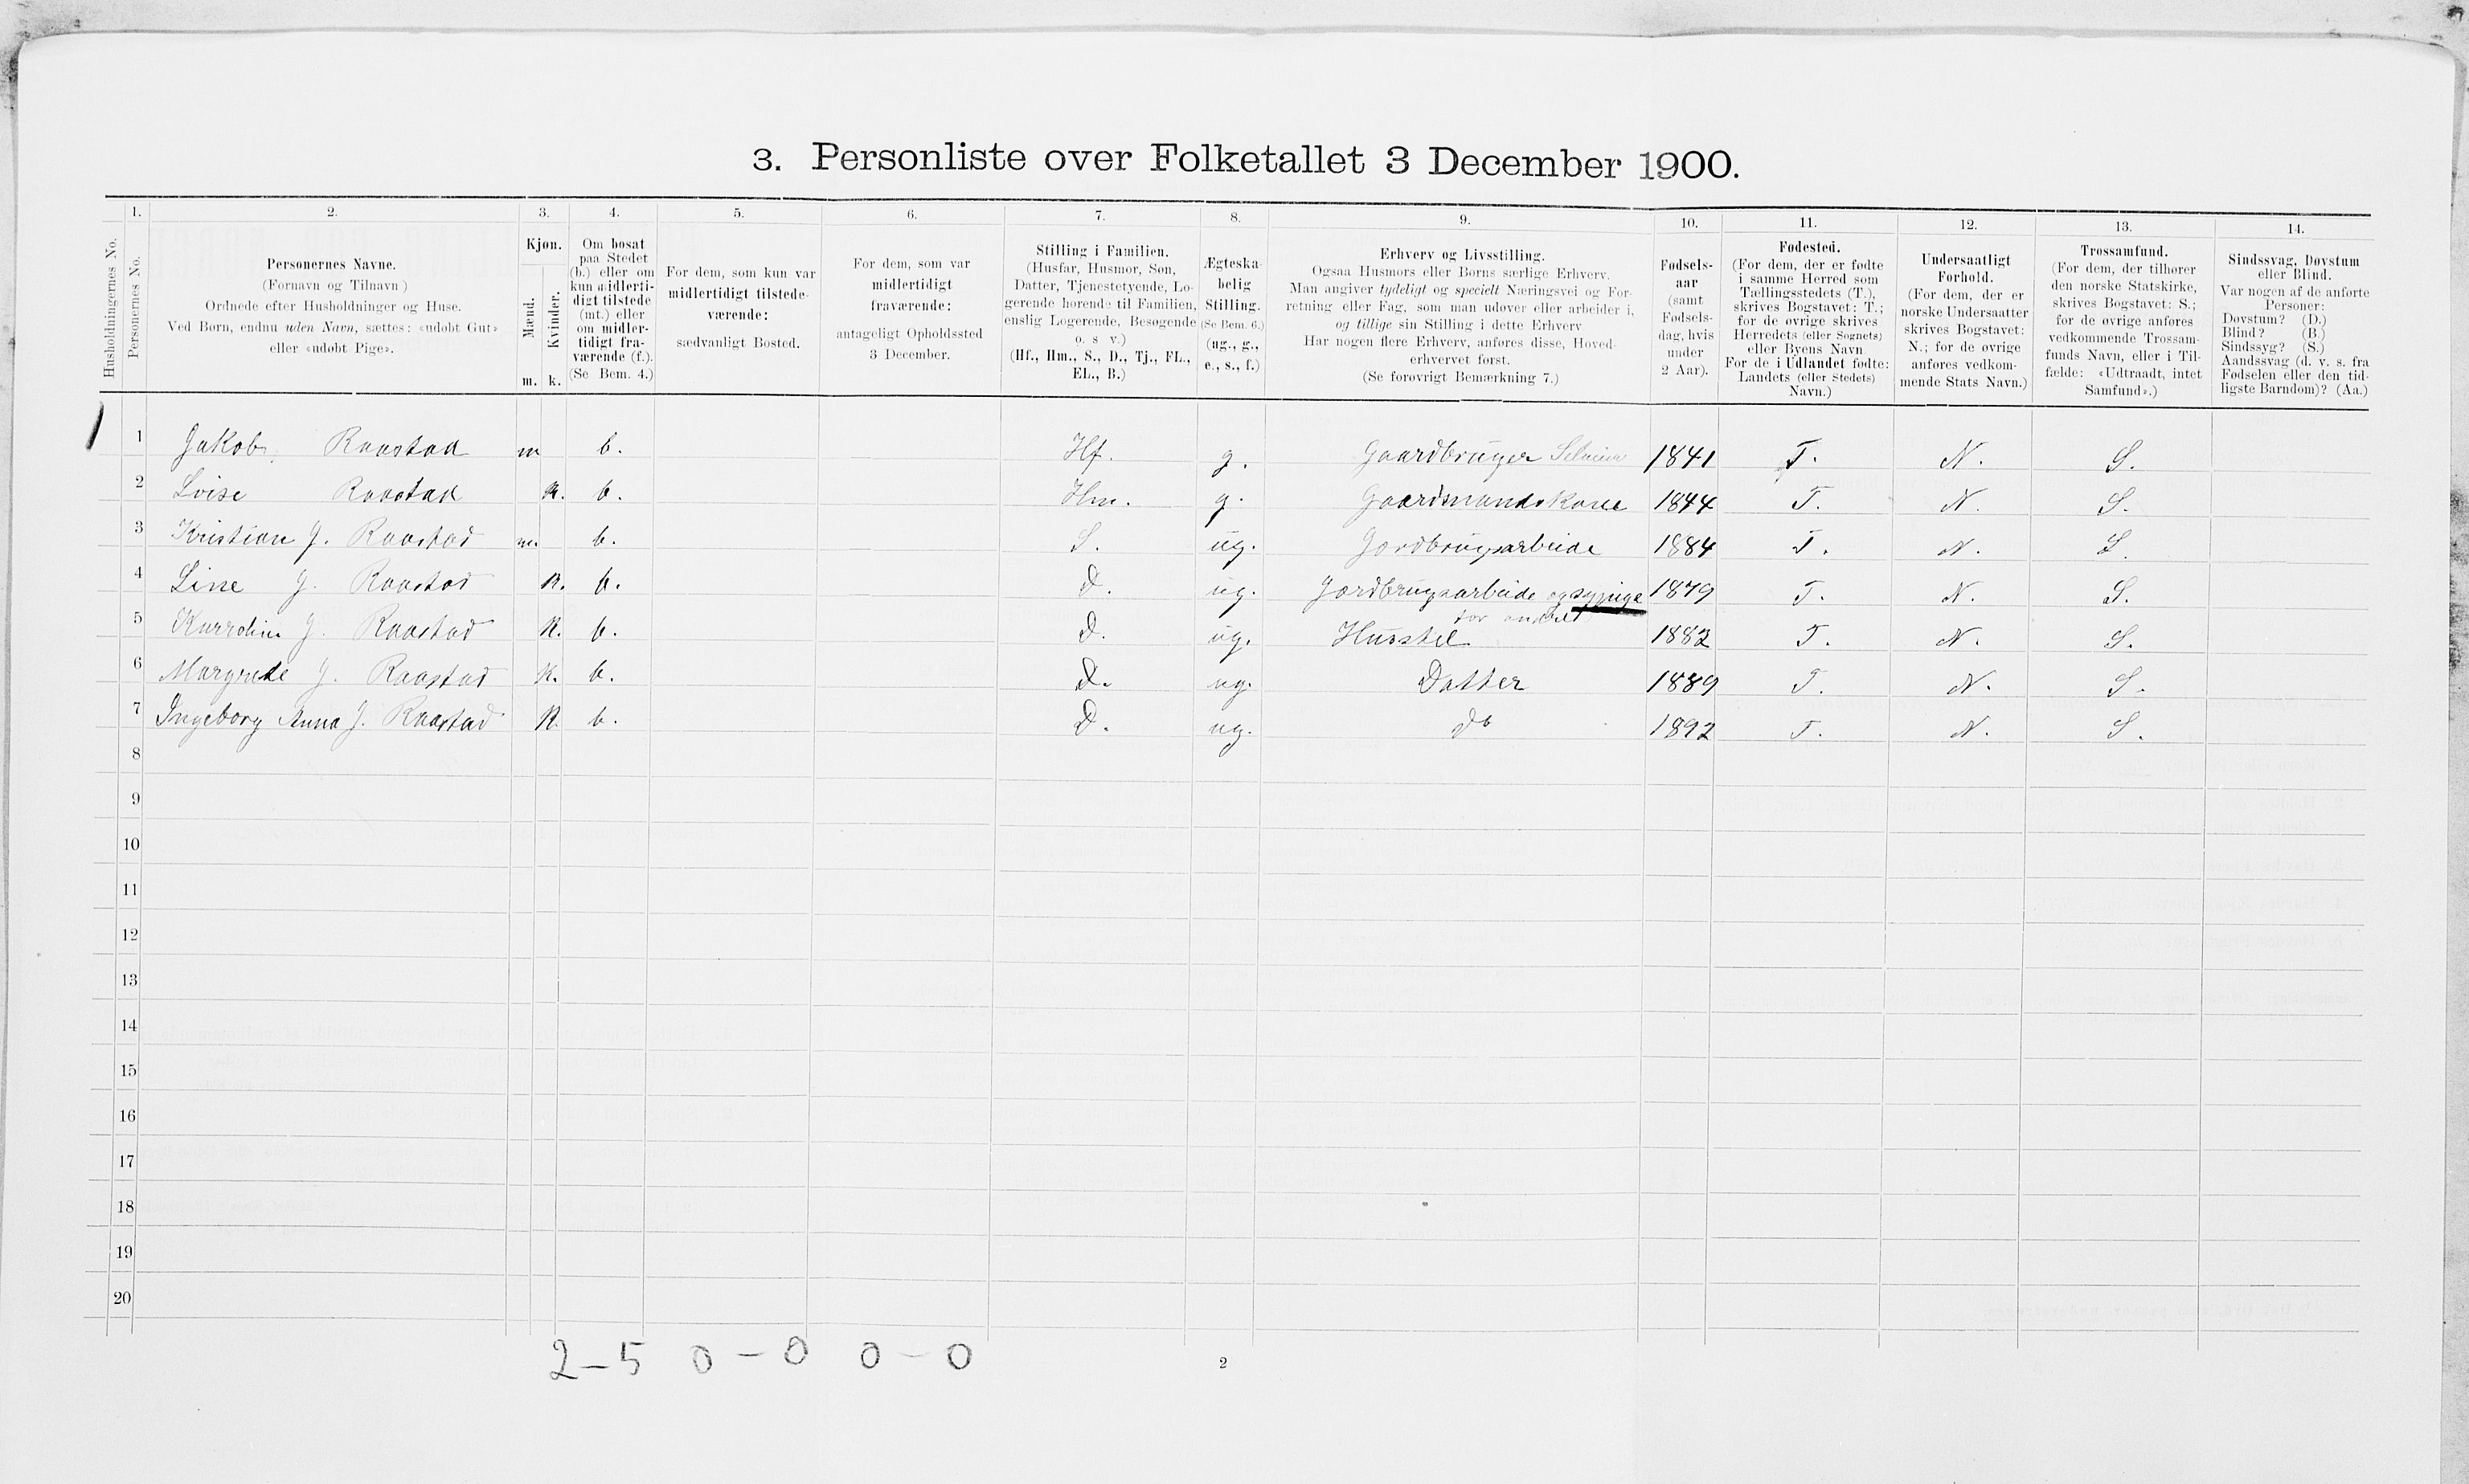 3. Personliste over Folketallet 3 December 1900.
1. 2. 3. 4. 5. 6. 7. 8. 9. 10. 11. 12. 13. 14.
Husholdningernes No.
Personernes No.
Personernes Navne.
(Fornavn og Tilnavn)
Ordnede efter Husholdninger og Huse.
Ved Børn, endnu uden Navn, sættes: «udøbt Gut»
eller «udøbt Pige».
Kjøn.
Mænd.
Kvinder.
m. k.
Om bosat
paa Stedet
(b.) eller om
kun midlerti-
digt tilstede
(mt.) eller
om midler-
tidigt fra-
værende (f.).
(Se Bem. 4.)
For dem, som kun var
midlertidigt tilstede-
værende:
sædvanligt Bosted.
For dem, som var
midlertidigt
fraværende:
antageligt Opholdssted
3 December.
Stilling i Familien.
(Husfar, Husmor, Søn,
Datter, Tjenestetyende, Lo-
gerende hørende til Familien,
enslig Logerende, Besøgende
o. s. v.)
(Hf., Hm., S., D., Tj., FL.,
EL., B.)
Ægteska-
belig
Stilling.
(Se Bem. 6.)
(ug., g.,
e., s., f.)
Erhverv og Livsstilling.
Ogsaa Husmors eller Børns særlige Erhverv.
Man angiver tydeligt og specielt Næringsvei og For-
retning eller Fag, som man udøver eller arbeider i,
og tillige sin Stilling i dette Erhverv
Har nogen flere Erhverv, anføres disse, Hoved-
erhvervet først.
(Se forøvrigt Bemærkning 7.)
Fødsels-
aar
(samt
Fødsels-
dag, hvis
under
2 Aar).
Fødested.
(For dem, der er fødte
i samme Herred som
Tællingsstedets (T.),
skrives Bogstavet: T.;
for de øvrige skrives
Herredets (eller Sognets)
eller Byens Navn
For de i Udlandet fødte:
Landets (eller Stedets)
Navn.)
Undersaatligt
Forhold.
(For dem, der er
norske Undersaatter
skrives Bogstavet:
N.; for de øvrige
anføres vedkom-
mende Stats Navn.)
Trossamfund.
(For dem, der tilhører
den norske Statskirke,
skrives Bogstavet: S.;
for de øvrige anføres
vedkommende Trossam-
funds Navn, eller i Til-
fælde: «Udtraadt, intet
Samfund».)
Sindssvag, Døvstum
eller Blind.
Var nogen af de anførte
Personer:
Døvstum? (D.)
Blind? (B.)
Sindssyg? (S.)
Aandssvag (d. v. s. fra
Fødselen eller den tid-
ligste Barndom)? (Aa.)
1 Jakob Raastad m b. Hf. g. Gaardbruger Selveier 1841 T. N. S.
2 Lvise Raastad k. b. Hm. g. Gaardmandskone 1844 T. N. S.
3 Kristian J. Raastad m. b. S. ug. Jordbrugsarbeide 1884 T. N. S.
4 Line J. Raastad k. b. D. ug. Jordbrugsarbeide og sypige 1879 T. N. S.
for andre
5 J. Raastad k. b. D. ug. Husstel 1882 T. N. S.
6 Margrete J. Raastad k. b. D. ug. Datter 1889 T. N. S.
7 Ingeborg Anna J. Raastad k. b. D. ug. do 1892 T. N. S.
8
9
10
11
12
13
14
15
16
17
18
19
20
2-5 0-0 0-0
2